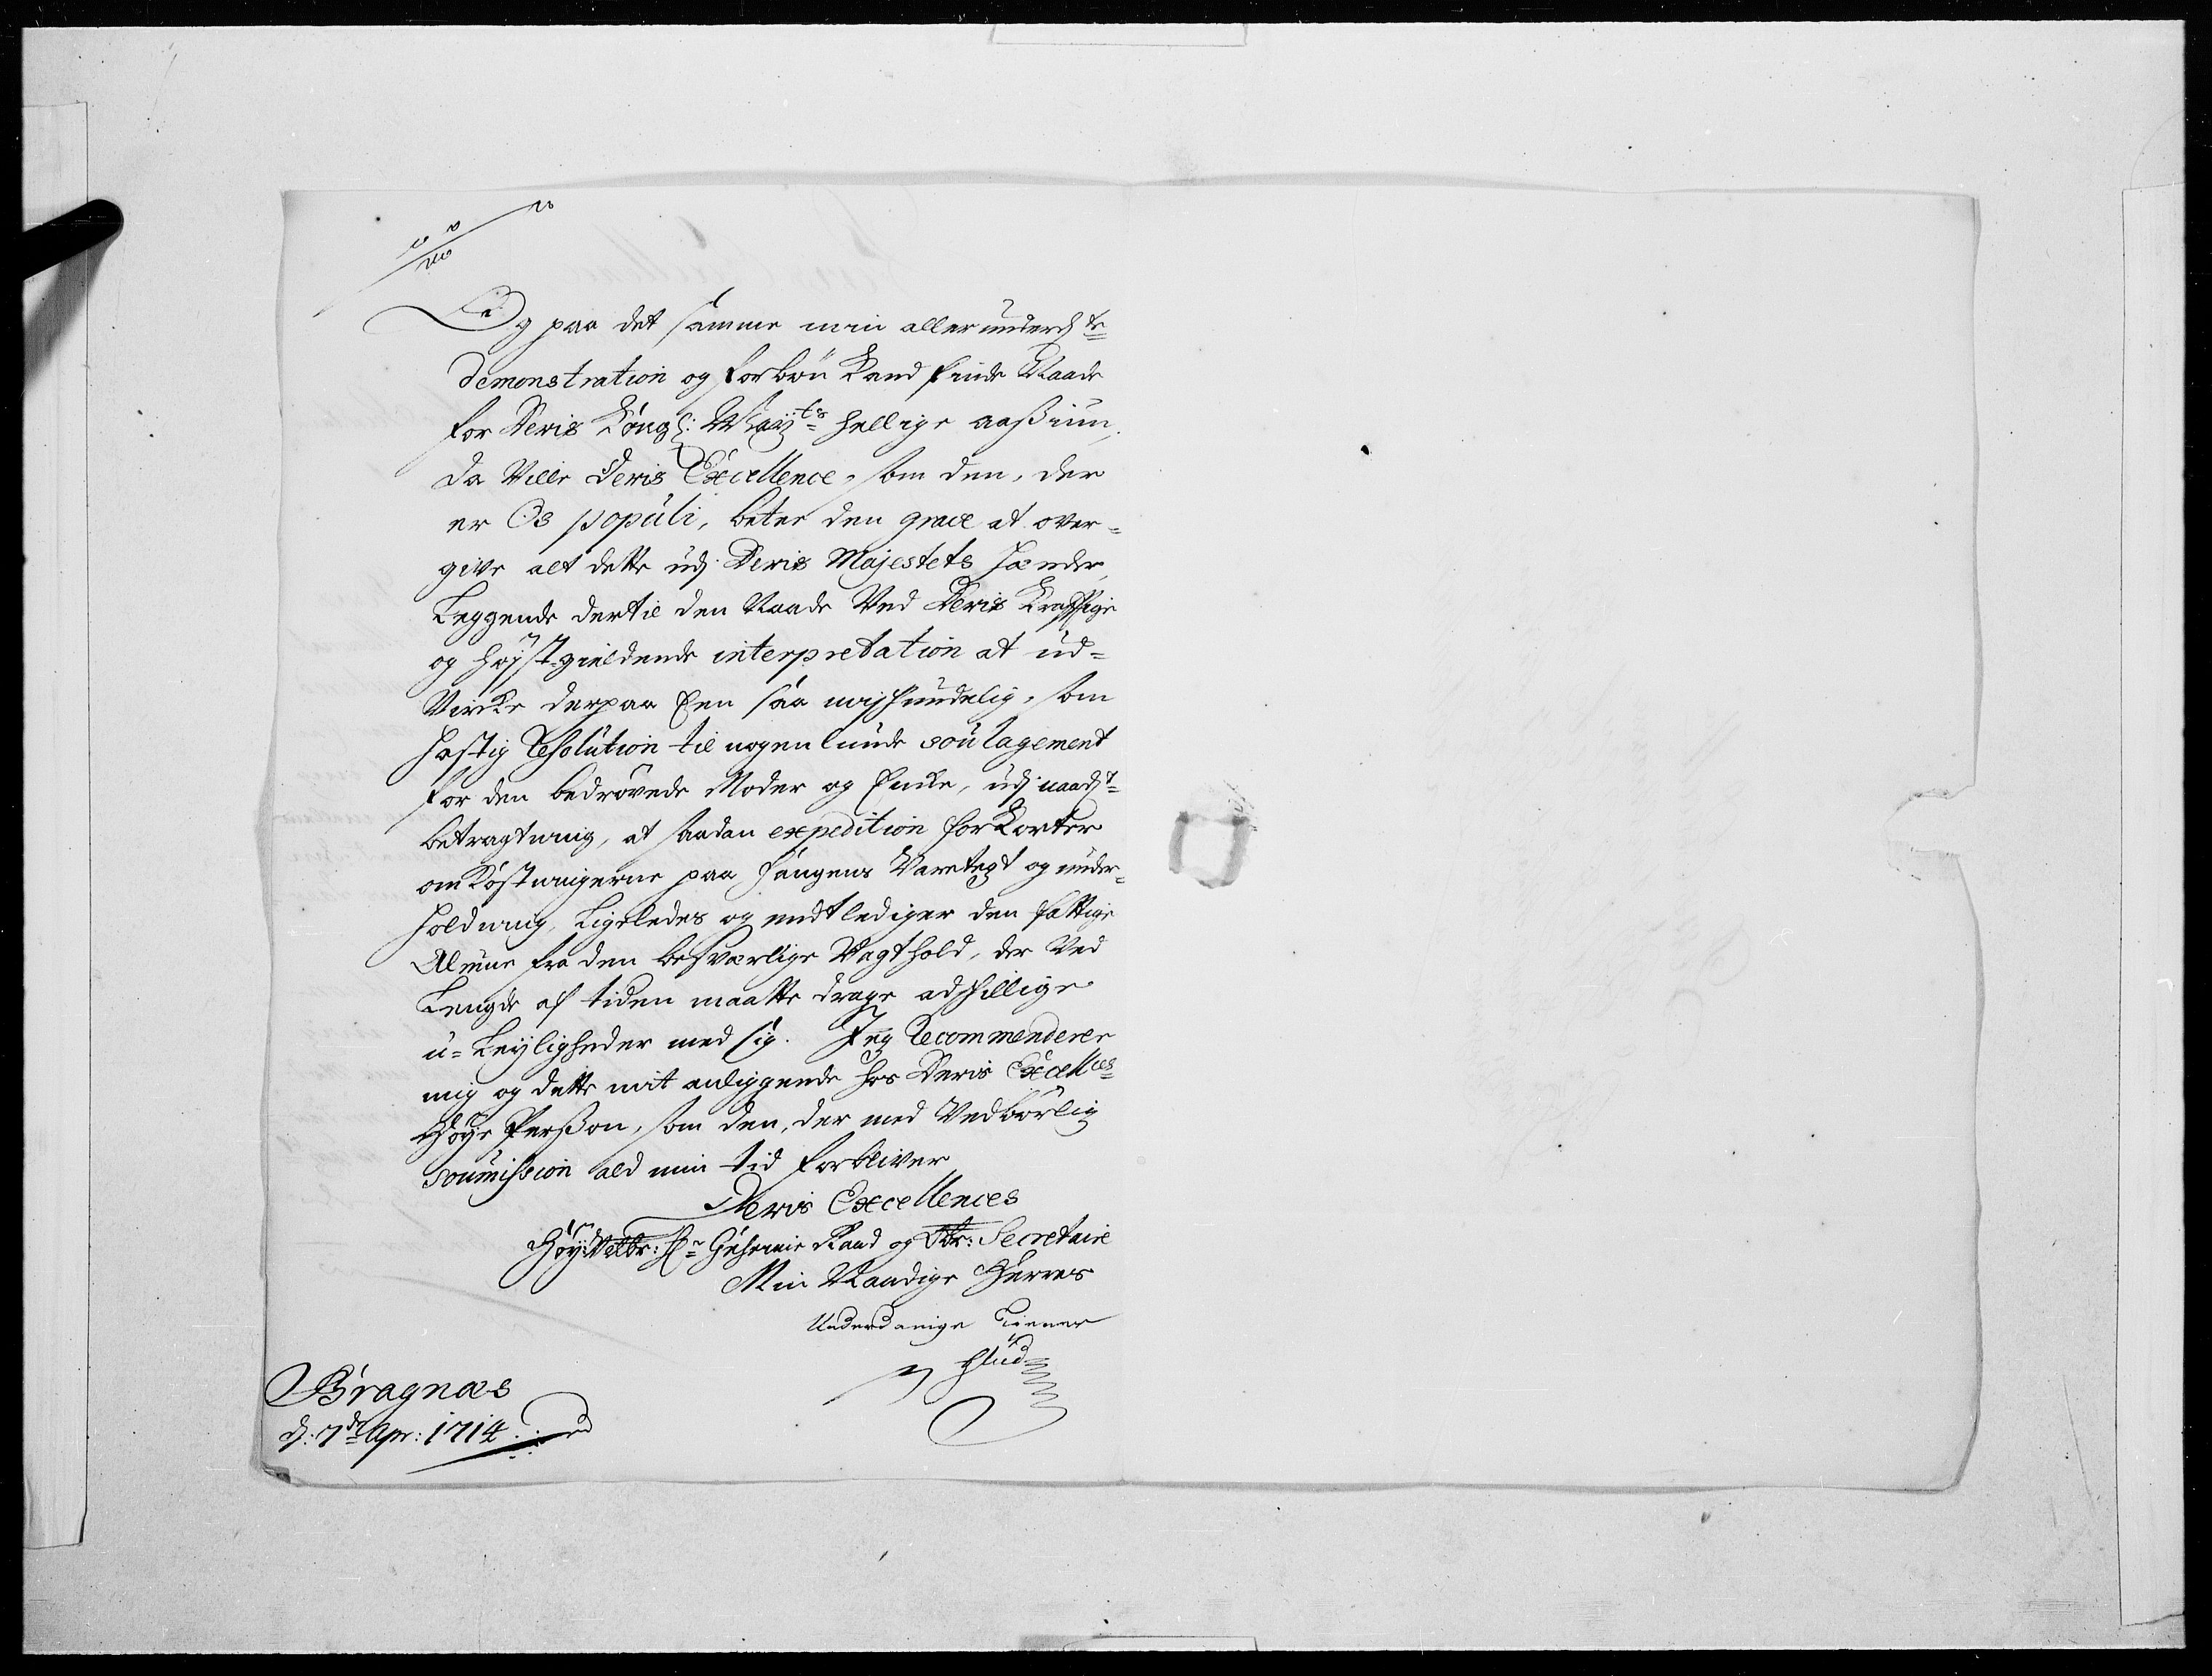 Og paa det samme min allerunderd: ste
demonstration og forbøn Kand finde Naade
for Deris Kongl: May:ts hellige aaßiun,
da Ville Deris Excellence, som den, der
er Os populi, beter den grace at over-
give alt dette udj Deris Majestets hænder,
Leggende dertil den Naade Ved Deris Krafftige
og højst-gieldende interpretation at ud-
Virke derpaa Een saa mishundelig, som
hastig Resolution til nogenlunde soulagement
for den bedrøvede Moder og Enke, udj naadst
betragtning, at saadan expedition forKorter
omKostningerne paa fangens Varetegt og under-
holdning, Ligeledes og endtlediger den fattige
Almue fra den besværlige Vagthold, der Ved
Lengde af tiden maatte drage adskillige
u-Leyligheder med sig. Jeg Recommenderer
mig og dette mit anliggende hos Deris Excellces
Høye Perßon, som den, der med Vedbørlig
soumission ald min tid forbliver
Deris Excellences
HøyVelbr: Hr Geheime Raad og Obr: Secretaire
Min Naadige Herres
Underdanige Tiener
Bragnæs
d: 7de Apr: 1714